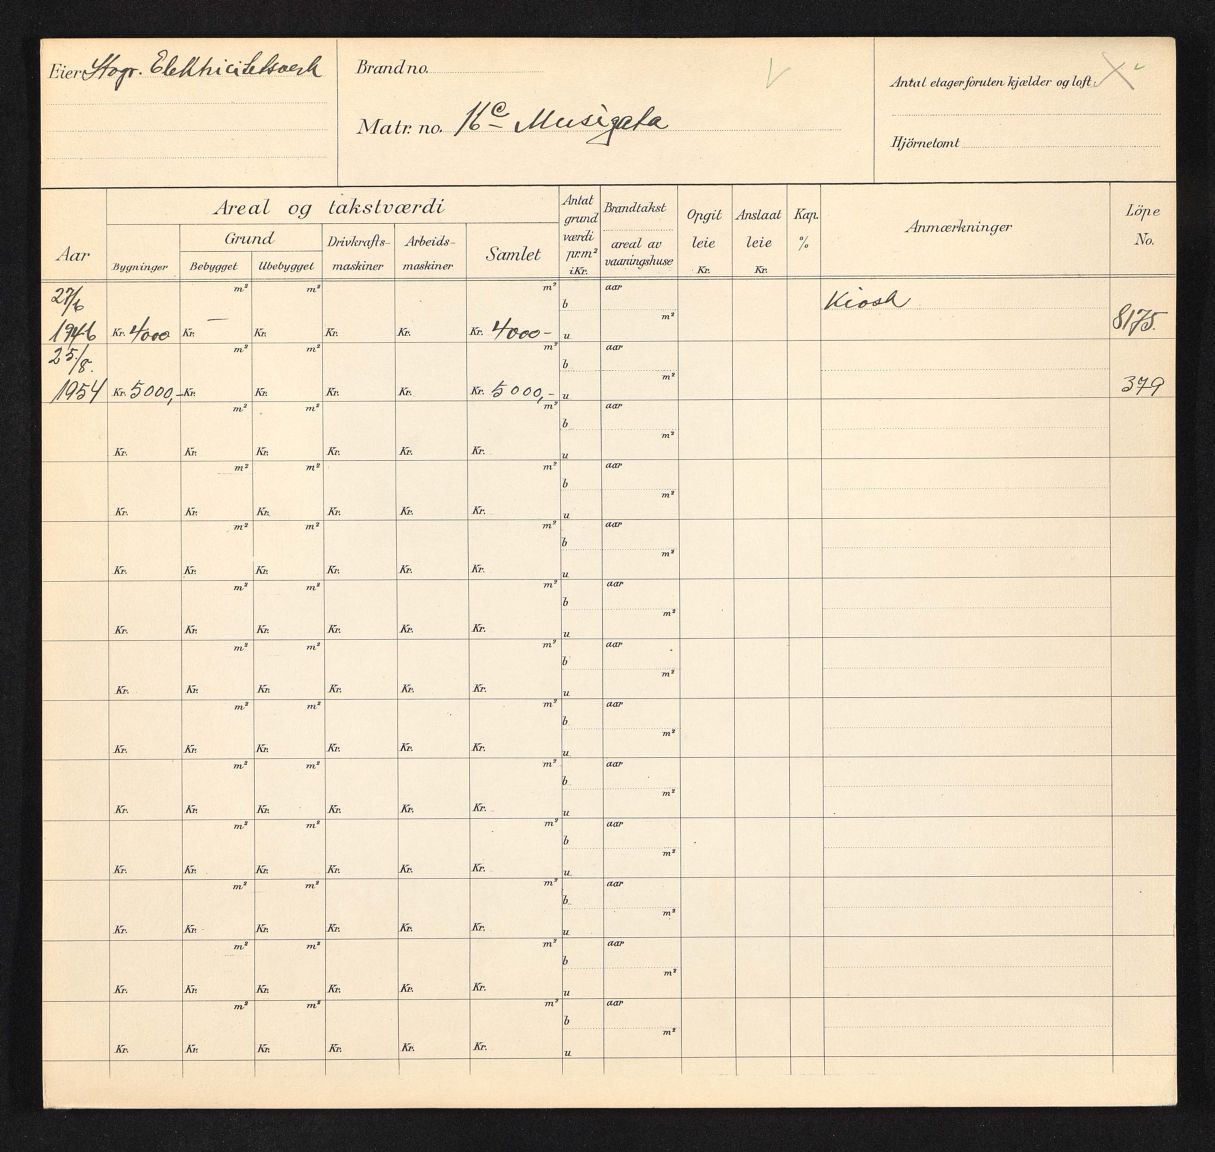 Eier Stvgr. Elektricitetsverk
Brand no.
Matr. no. 16 c Musegata
Antal etager foruten kjælder og loft
Hjörnetomt
Aar
Areal og takstværdi
Bygninger
Grund
Bebygget Ubebygget
Drivkrafts-
maskiner
Arbeids-
maskiner
Samlet
Antat
grund
værdi
pr. m²
i Kr.
Brandtakst
areal av
vaaningshuse
Opgit
leie
Kr.
Anslaat
leie
Kr.
Kap.
%
Anmærkninger
Löpe
No.
27/6 m² m² m² b aar Kiosk
m²
1946 Kr. 4000 Kr. — Kr. Kr. Kr. Kr. 4000- u 8175.
25./8. m² m² m² b aar
m²
1954 Kr. 5000,- Kr. Kr. Kr. Kr. Kr. 5000,- u 379
m² m² m² b aar
m²
Kr. Kr. Kr. Kr. Kr. Kr. u
m² m² m² b aar
m²
Kr. Kr. Kr. Kr. Kr. Kr. u
m² m² m² b aar
m²
Kr. Kr. Kr. Kr. Kr. Kr. u
m² m² m² b aar
m²
Kr. Kr. Kr. Kr. Kr. Kr. u
m² m² m² b aar
m²
Kr. Kr. Kr. Kr. Kr. Kr. u
m² m² m² b aar
m²
Kr. Kr. Kr. Kr. Kr. Kr. u
m² m² m² b aar
m²
Kr. Kr. Kr. Kr. Kr. Kr. u
m² m² m² b aar
m²
Kr. Kr. Kr. Kr. Kr. Kr. u
m² m² m² b aar
m²
Kr. Kr. Kr. Kr. Kr. Kr. u
m² m² m² b aar
m²
Kr. Kr. Kr. Kr. Kr. Kr. u
m² m² m² b aar
m²
Kr. Kr. Kr. Kr. Kr. Kr. u